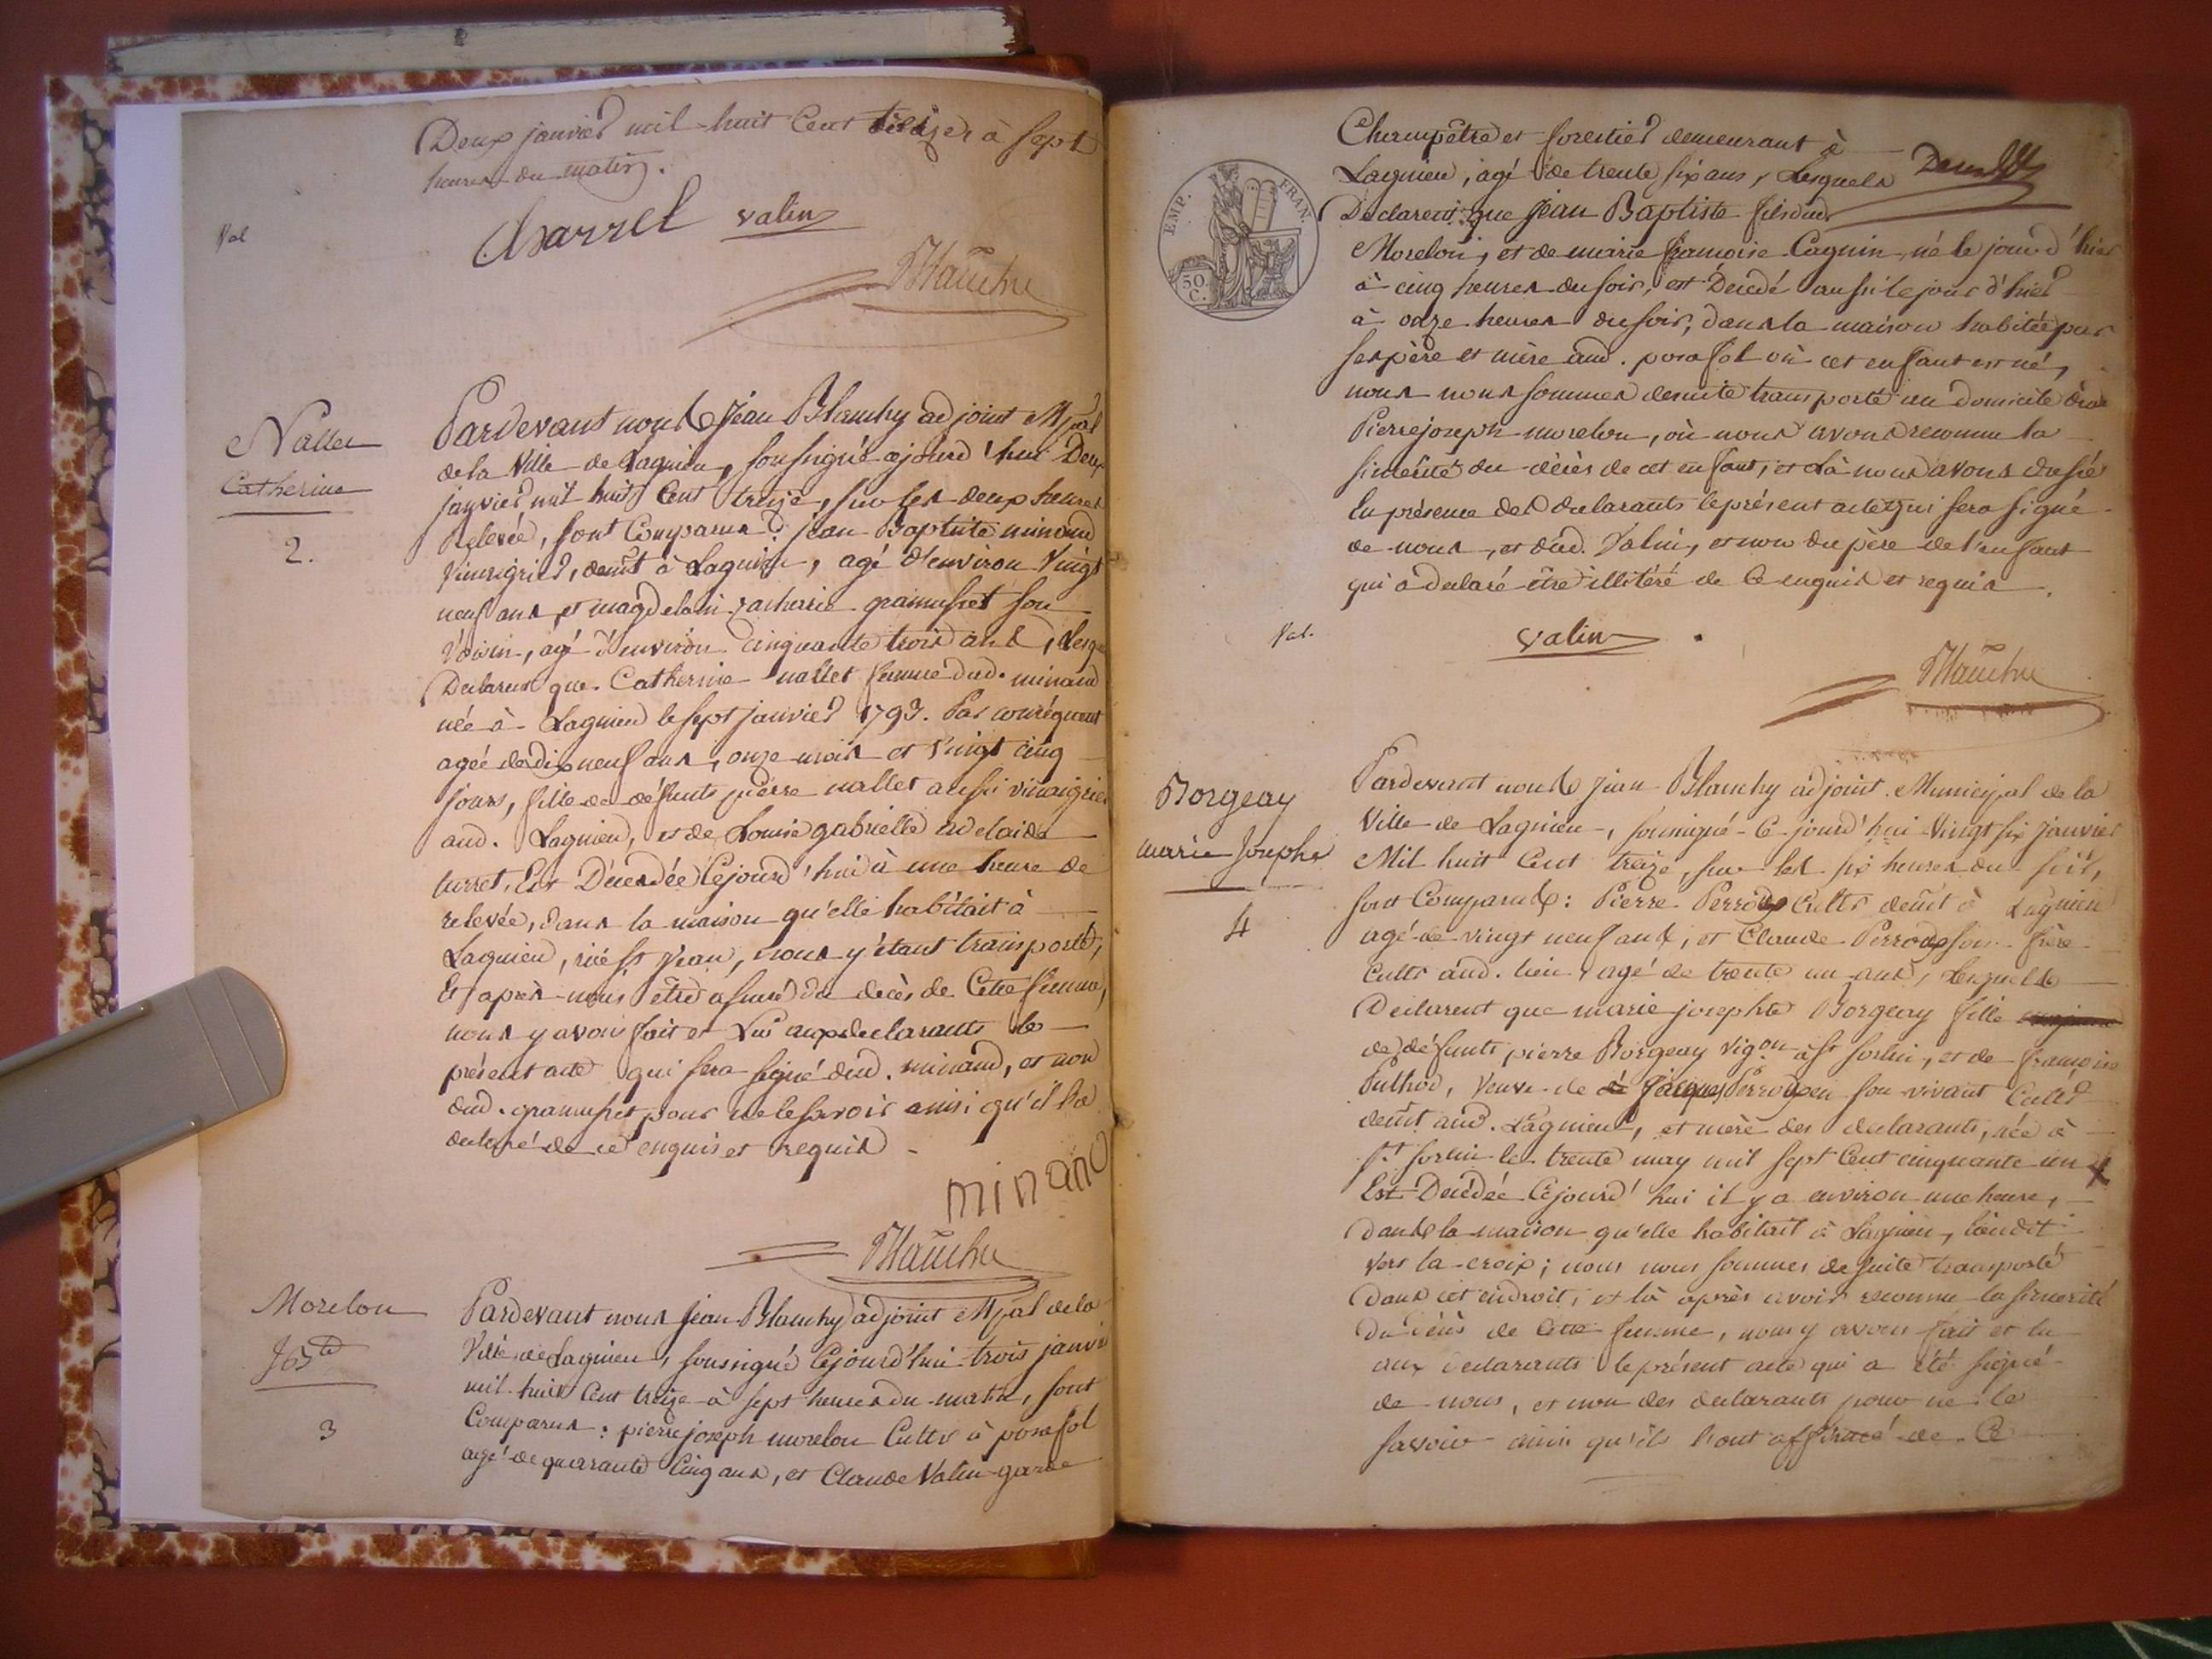 Deux janvier mil huit Cent treize à sept
heures du matin.
Val
Charrel valin
Blanchy
Nallet
Catherine
2.
Pardevant nous Jean Blanchy adjoint Mpal
de la Ville de Lagnieu, soussigné cejourd'hui Deux
janvier mil huit Cent treize, sur les deux heures
Relevée, sont Comparus: jean Baptiste minand
Vinaigrier, demt à Lagnieu, agé d'environ Vingt
neuf ans et magdelain zacharie gramusset son
Voisin, agé d'environ cinquante trois ans,
Declarent que Catherine nallet femme dud. minand
née à Lagnieu le sept janvier 1793. Par conséquent
agée de dix neuf ans, onze mois et Vingt cinq
jours, fille de défunts pierre nallet aussi vinaigrier
aud. Lagnieu, et de Louise gabrielle adelaide
turret, Est Décédée Cejourd'hui à une heure de
relevée, dans la maison qu'elle habitait à
Lagnieu, rue st jean, nous y étant transporté,
Et après nous être assuré du décès de Cette femme,
nous y avons fait et Lu aux declarants le
présent acte qui sera signé dud. minand, et non
dud. gramusset pour ne le savoir ainsi qu'il l'a
declaré de ce enquis et requis
minand
Blanchy
Morelon
J. Bte
3
Pardevant nous jean Blanchy adjoint Mpal de la
Ville de Lagnieu, soussigné Cejourd'hui trois janvier
mil huit Cent treize à sept heures du matin, sont
Comparus: pierre joseph morelon Cultr à posafol
agé de quarante Cinq ans, et Claude Valin garde
Champêtre et forestier demeurant à
Lagnieu, agé de trente six ans, Lesquels
EMP. FRAN.
50 C.
Declarent que Jean Baptiste fils dud.
Morelon, et de marie françoise Cagnin, né le jour d'hier
à cinq heures du soir, est Décédé aussi le jour d'hier
à onze heures du soir, dans la maison habitée par
ses père et mère aud. posafol où cet enfant est né,
nous nous sommes de suite transporté au domicile dud.
Pierre joseph morelon, où nous avons reconnu la
sincérité du décès de cet enfant, et Là nous avons dressé
En présence des declarants le présent acte qui sera signé
de nous, et dud. Valin, et non du père de l'enfant
qui a declaré être illitéré de Ce enquis et requis.
Val.
valin
Blanchy
Borgeay
marie Josephe
4
Pardevant nous Jean Blanchy adjoint Municipal de la
Ville de Lagnieu, soussigné Ce jourd'hui Vingt six janvier
Mil huit Cent treize, sur les six heures du soir,
sont Comparus: Pierre Perroux Cultr demt à Lagnieu
agé de vingt neuf ans, et Claude Perroux son frère
cultr aud. lieu agé de trente un ans, Lesquels
Declarent que marie josephte Borgeay fille
de défunts pierre Borgeay vigon à st sorlin, et de françoise
Puthod, Veuve de Jacques Perroux en son vivant Cultr
demt aud. Lagnieu, et mère des declarants, née à
st. sorlin le trente may mil sept Cent cinquante un
Est Décédée Cejourd'hui il y a environ une heure,
dans la maison qu'elle habitait à Lagnieu, lieudit
vers la croix; nous nous sommes de suite transporté
Dans cet endroit, et là après avoir reconnu la sincerité
Du décès de Cette femme, nous y avons fait et lu
aux declarants le présent acte qui a été signé
de nous, et non des declarants pour ne le
savoir ainsi qu'ils l'ont affirmé de Ce